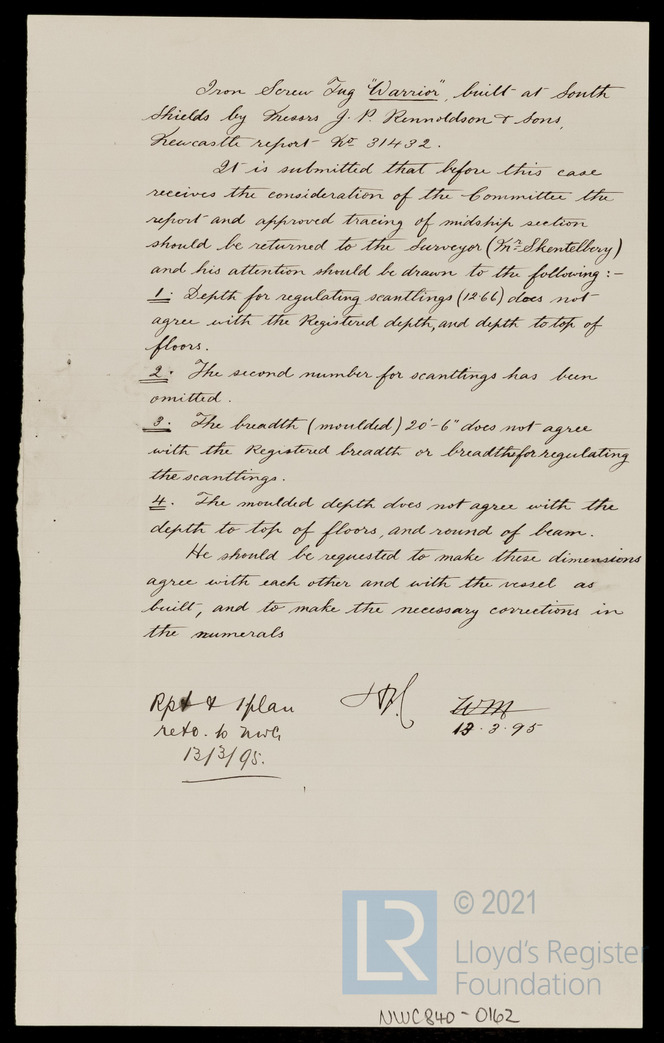 Iron Screw Tug "Warrior", built at South
Shields by Messrs J. P. Rennoldson & Sons,
Newcastle report No 31432.
It is submitted that before this case
receives the consideration of the Committee the
report and approved tracing of midship section
should be returned to the Surveyor (Mr Skentelbery)
and his attention should be drawn to the following:-
1. Depth for regulating scantlings (12.66) does not
agree with the Registered depth, and depth to top of
floors.
2. The second number for scantlings has been
omitted.
3. The breadth (moulded) 20'-6" does not agree
with the Registered breadth or breadths for regulating
the scantlings.
4. The moulded depth does not agree with the
depth to top of floors, and round of beam.
He should be requested to make these dimensions
agree with each other and with the vessel as
built, and to make the necessary corrections in
the numerals
Rpt & 1 plan
retd. to NWC
13/3/95.
WM
13.3.95
LR
© 2021
Lloyd's Register
Foundation
NWC840-0162